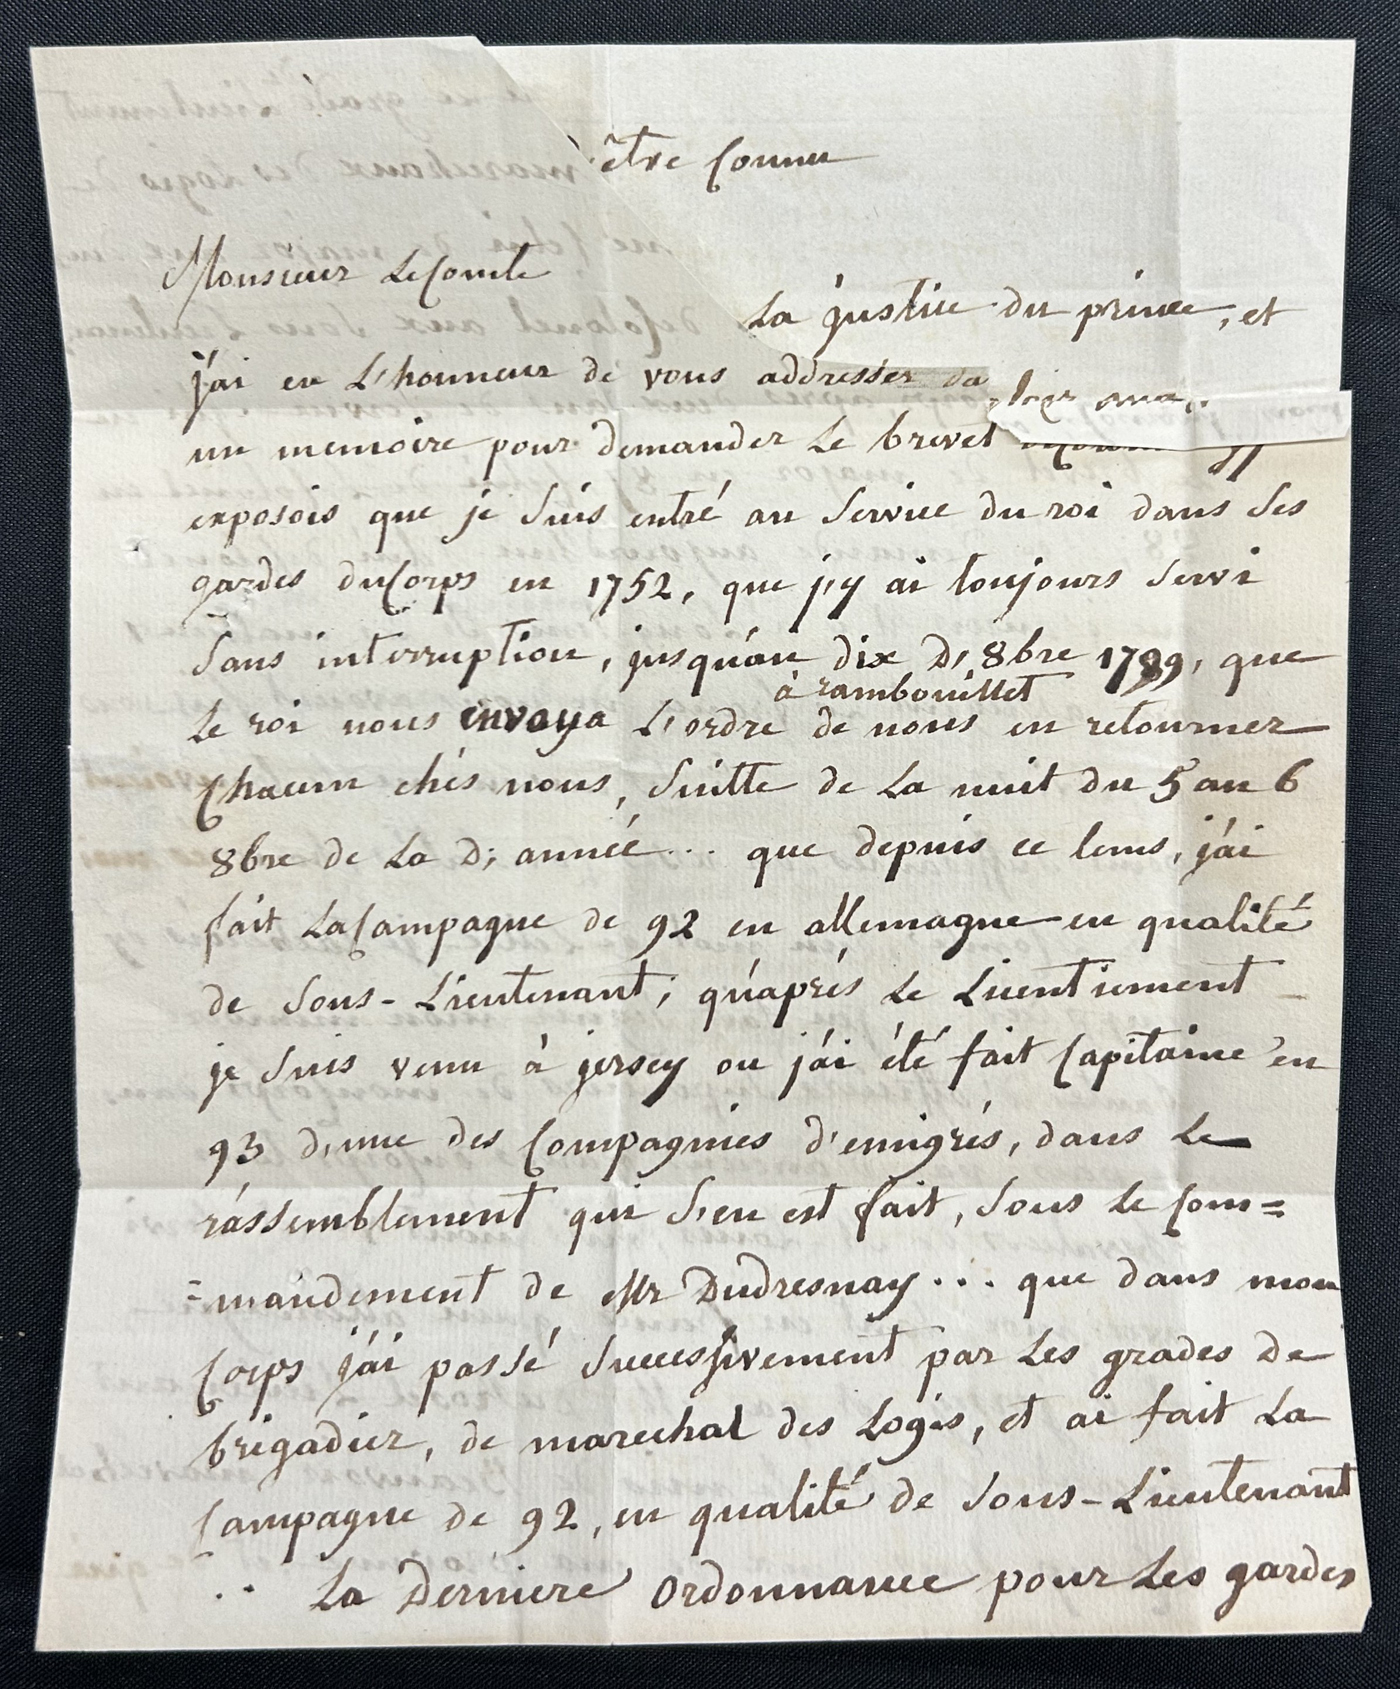 être Connu
Monsieur Le Comte
La justice du prince, et
j'ai eu L'honneur de vous addresser da
un memoire pour demander Le brevet
exposois que je suis entré au service du roi dans ses
gardes du Corps en 1752, que j'y ai toujours servi
sans interruption, jusqu'au dix D, 8bre 1789, que
à rambouillet
Le roi nous envoya L'ordre de nous en retourner
Chacun chés nous, suitte de La nuit du 5 au 6
8bre de La D; année... que depuis ce tems, j'ai
fait La Campagne de 92 en allemagne en qualité
de sous-Lieutenant; qu'aprés Le Licentiement
je suis venu à jersey ou j'ai été fait Capitaine en
93 d'une des Compagnies d'emigrés, dans Le
rassemblement qui s'en est fait, sous Le Com=
=mandement de Mr Dudresnay... que dans mon
Corps j'ai passé successivement par Les grades de
brigadier, de marechal des Logis, et ai fait La
Campagne de 92, en qualité de sous-Lieutenant
.. La Derniere ordonnance pour Les gardes